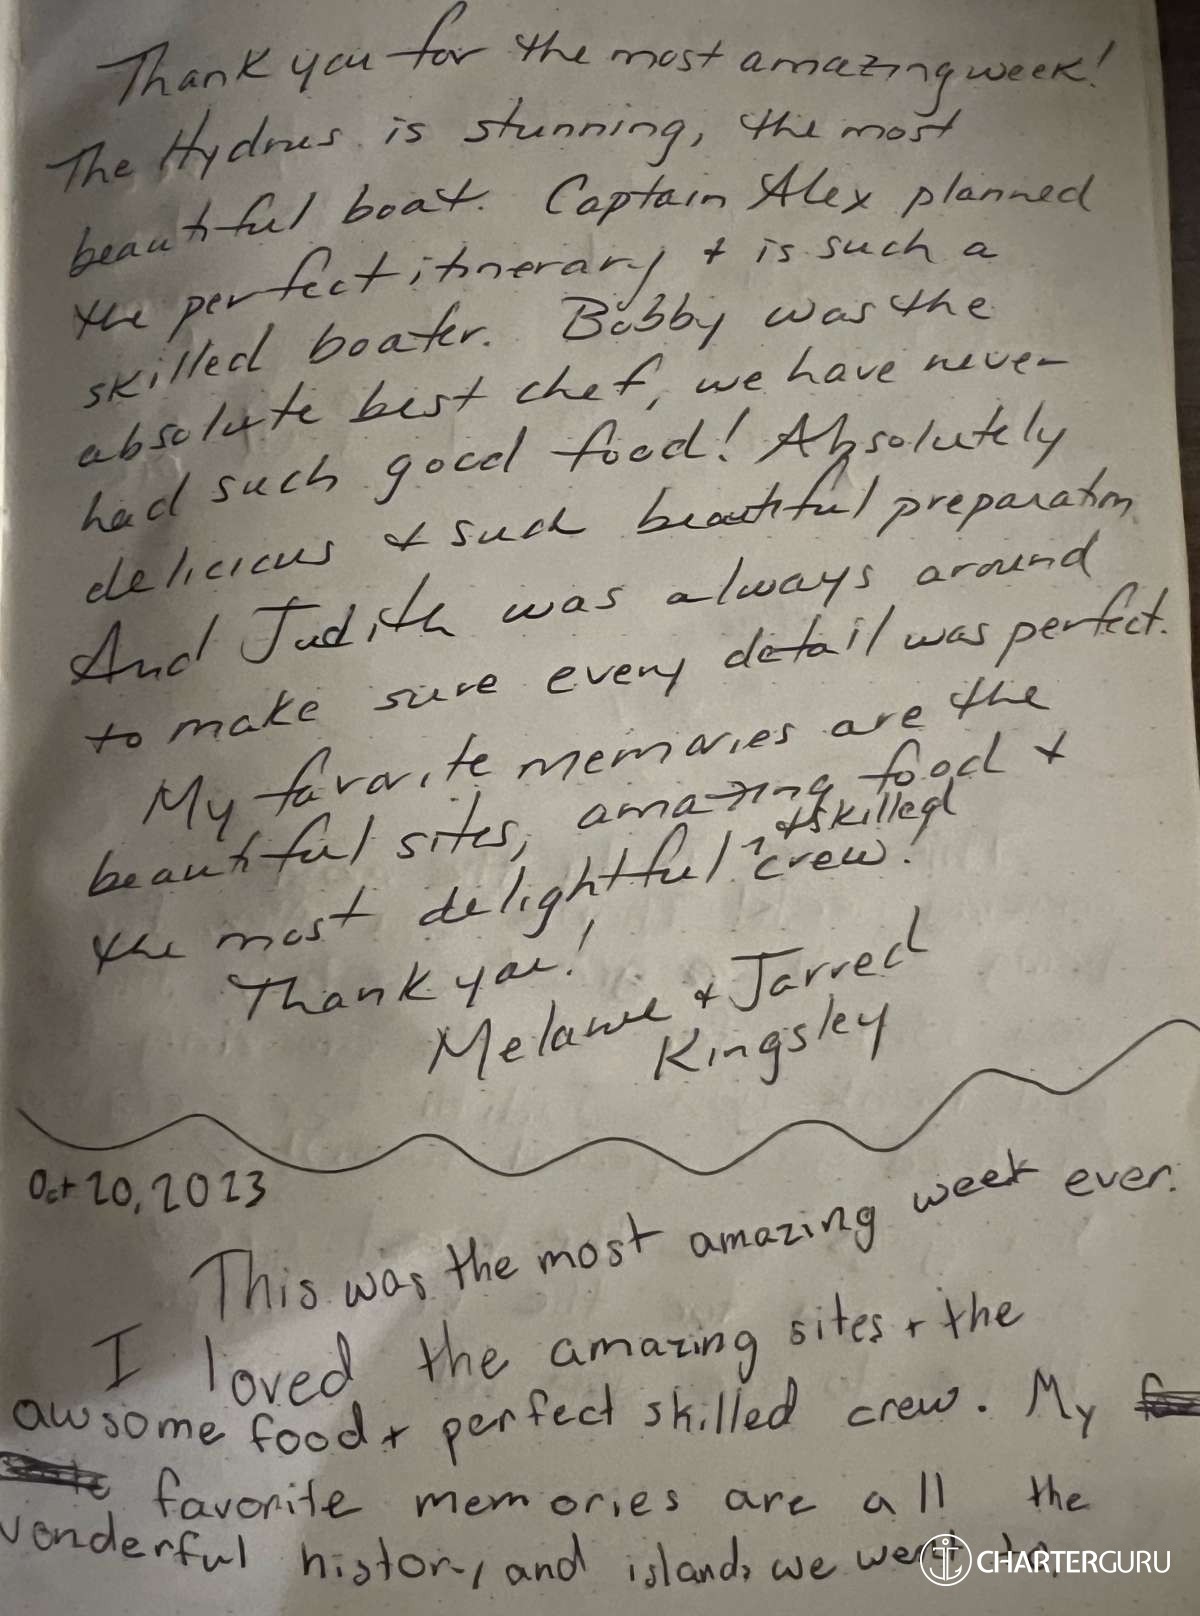 Thank you for the most amazing week!
The Hydrus is stunning, the most
beautiful boat. Captain Alex planned
the perfect itinerary + is such a
skilled boater. Bobby was the
absolute best chef, we have never
had such good food! Absolutely
delicious + such beautiful preparation
And Judith was always around
to make sure every detail was perfect.
My favorite memories are the
beautiful sites, amazing food +
+ skilled
the most delightful ^ crew!
Thank you!
Melanie + Jarred
Kingsley
Oct 20, 2023
This was the most amazing week ever.
I loved the amazing sites + the
awsome food + perfect skilled crew. My
favorite memories are all the
wonderful history, and islands we went to.
CHARTERGURU